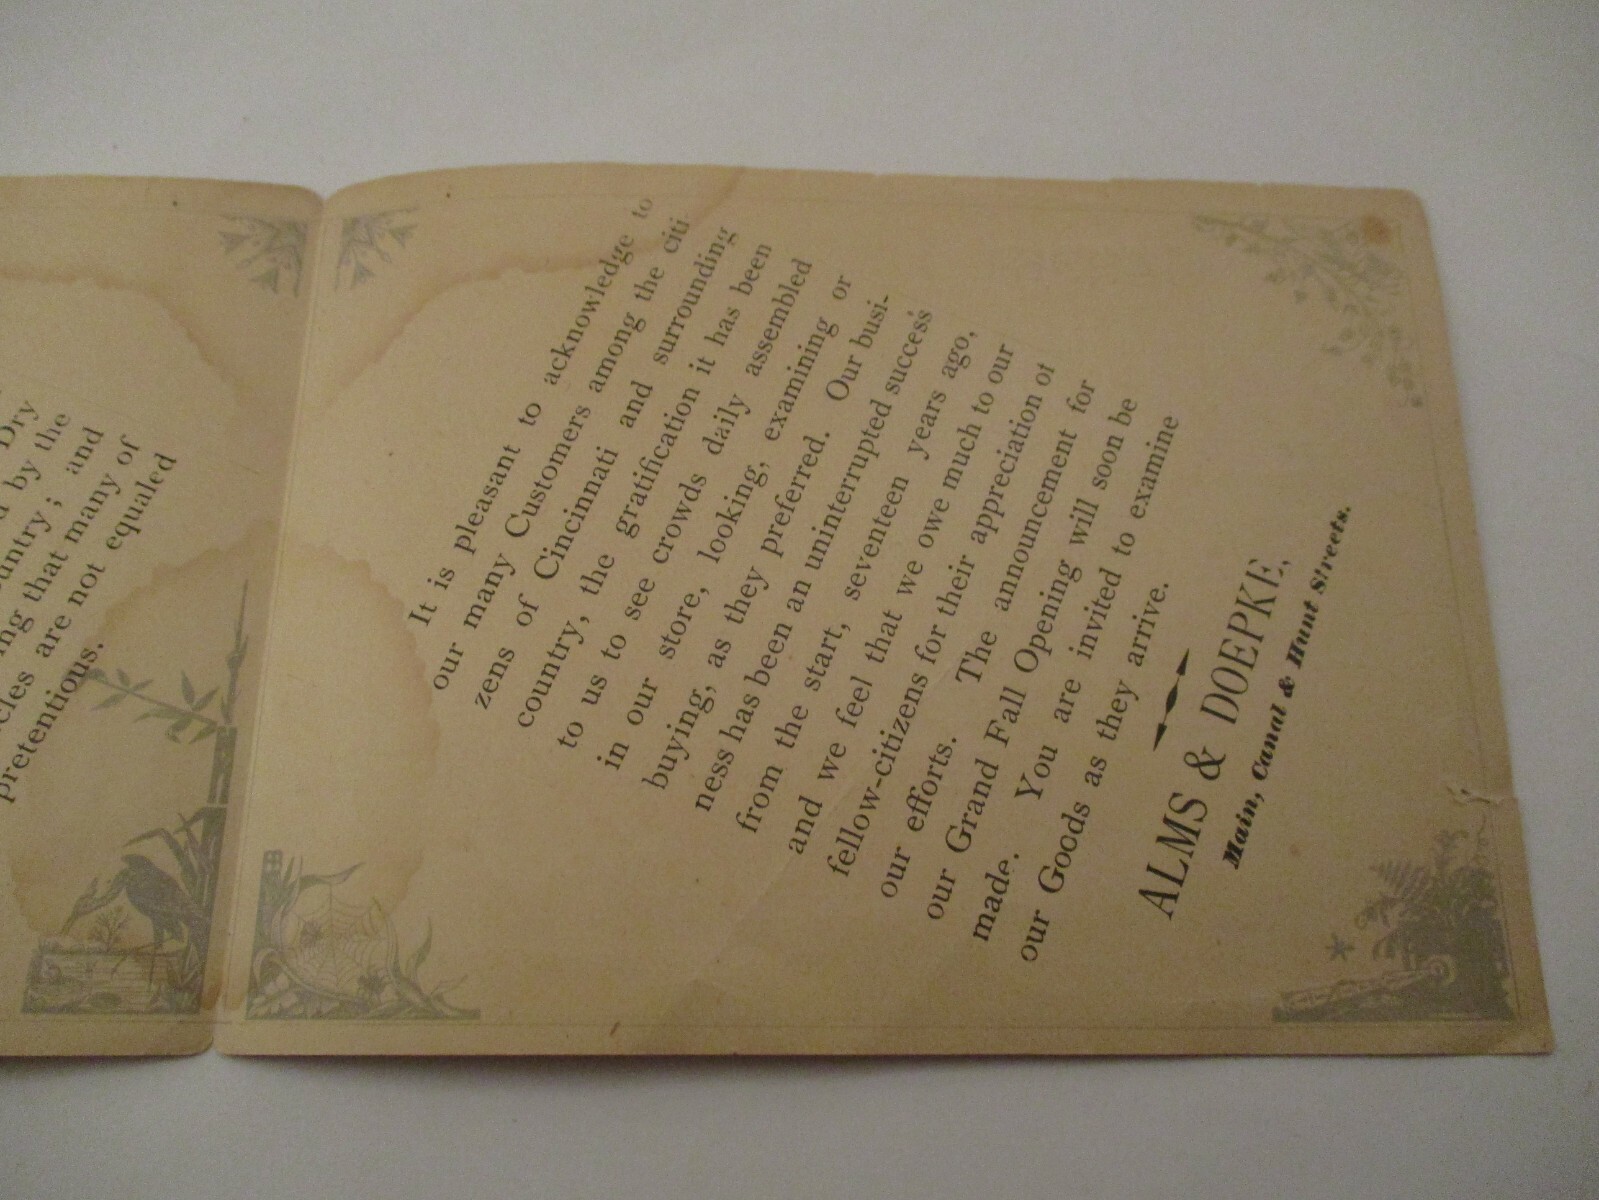 Dry
by the
country; and
ing that many of
cles are not equaled
pretentious.
It is pleasant to acknowledge to
our many Customers among the citi-
zens of Cincinnati and surrounding
country, the gratification it has been
to us to see crowds daily assembled
in our store, looking, examining or
buying, as they preferred. Our busi-
ness has been an uninterrupted success
from the start, seventeen years ago,
and we feel that we owe much to our
fellow-citizens for their appreciation of
our efforts. The announcement for
our Grand Fall Opening will soon be
made. You are invited to examine
our Goods as they arrive.
ALMS & DOEPKE,
Main, Canal & Hunt Streets.